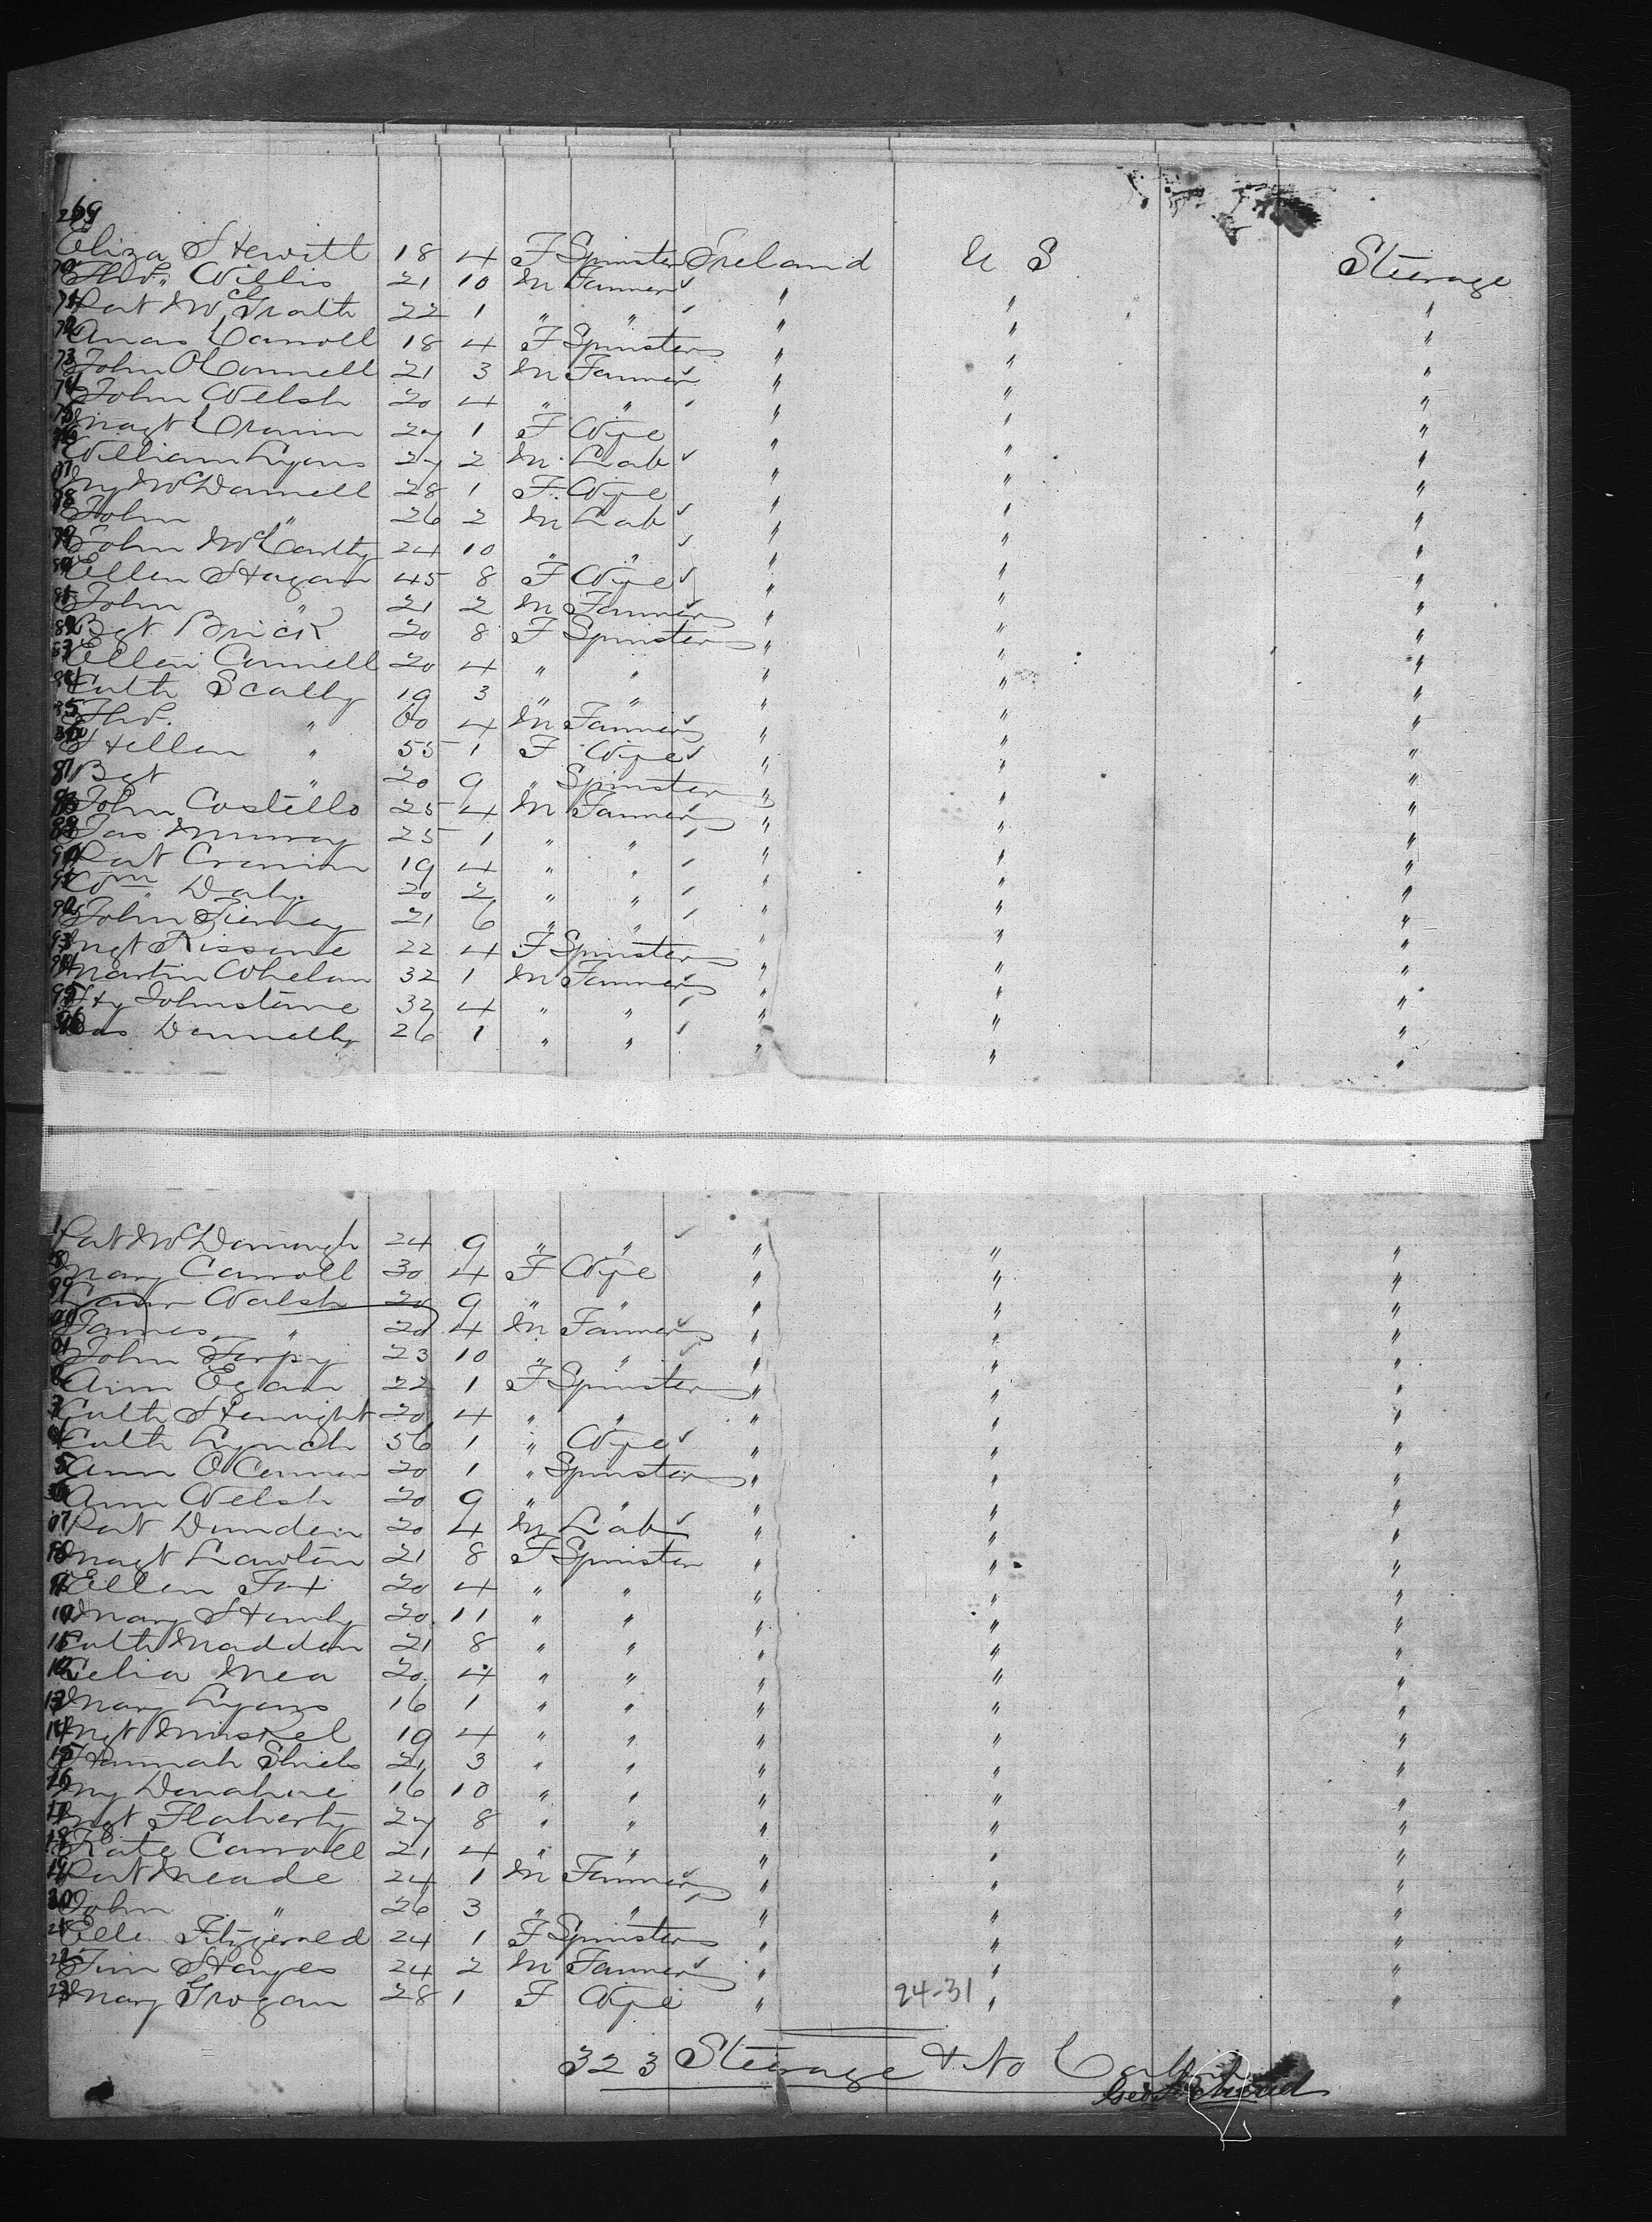 269
Eliza Hewitt 18 4 F Spinster Ireland U S Steerage
70 Thos. Willis 21 10 M Farmer ✓ " " "
71 Pat McGrath 22 1 " " ✓ " " "
72 Carroll 18 4 F Spinster " " "
73 John OConnell 21 3 M Farmer ✓ " " "
74 John Welsh 20 4 " " ✓ " " "
75 Magt Cronin 27 1 F Wife " " "
76 William Lyons 27 2 M Lab ✓ " " "
77 My McDonnell 28 1 F Wife " " "
78 John " 26 2 M Lab ✓ " " "
79 John McCarthy 24 10 " " ✓ " " "
80 Ellen Hogan 45 8 F Wife ✓ " " "
81 John " 21 2 M Farmer ✓ " " "
82 Bgt Brick 20 8 F Spinster " " "
83 Ellen Connell 20 4 " " " " "
84 Cath Scally 19 3 " " " " "
85 Thos. " 60 4 M Farmer ✓ " " "
86 Hellen " 55 1 F Wife ✓ " " "
87 Bgt " 20 9 " Spinster " " "
88 John Costello 25 4 M Farmer ✓ " " "
89 Jas Murray 25 1 " " ✓ " " "
90 Pat Cronin 19 4 " " ✓ " " "
91 Wm Daly 20 2 " " ✓ " " "
92 John Tierney 21 6 " " ✓ " " "
93 Mgt Kissane 22 4 F Spinster " " "
94 Martin Whelan 32 1 M Farmer ✓ " " "
95 Hy Johnstone 32 4 " " ✓ " " "
96 Donnelly 26 1 " " ✓ " " "
Pat McDonough 24 9 " " ✓ " " "
98 Mary Carroll 30 4 F Wife " " "
99 Walsh 20 9 " " " " "
James " 20 4 M Farmer ✓ " " "
01 John Torpy 23 10 " " ✓ " " "
2 Ann Egan 22 1 F Spinster " " "
3 Cath Henright 20 4 " " " " "
4 Cath Lynch 56 1 " Wife ✓ " " "
5 Ann OConnor 20 1 " Spinster " " "
Ann Welsh 20 9 " " " " "
07 Pat Dunden 20 4 M Lab ✓ " " "
Magt Lawton 21 8 F Spinster " " "
Ellen Fox 20 4 " " " " "
10 Mary Hanly 20 11 " " " " "
11 Cath Madden 21 8 " " " " "
12 Celia Mea 20 4 " " " " "
13 Mary Lyons 16 1 " " " " "
14 Mgt Miskel 19 4 " " " " "
15 Hannah Shiels 21 3 " " " " "
16 My Donahue 16 10 " " " " "
17 Mgt Flaherty 27 8 " " " " "
18 Kate Carroll 21 4 " " " " "
19 Pat Meade 24 1 M Farmer ✓ " " "
20 John " 26 3 " " ✓ " " "
21 Elle Fitzgerald 24 1 F Spinster " " "
22 Tim Hayes 24 2 M Farmer ✓ " " "
23 Mary Grogan 28 1 F Wife " 24-31 " "
323 Steerage & No Cabin